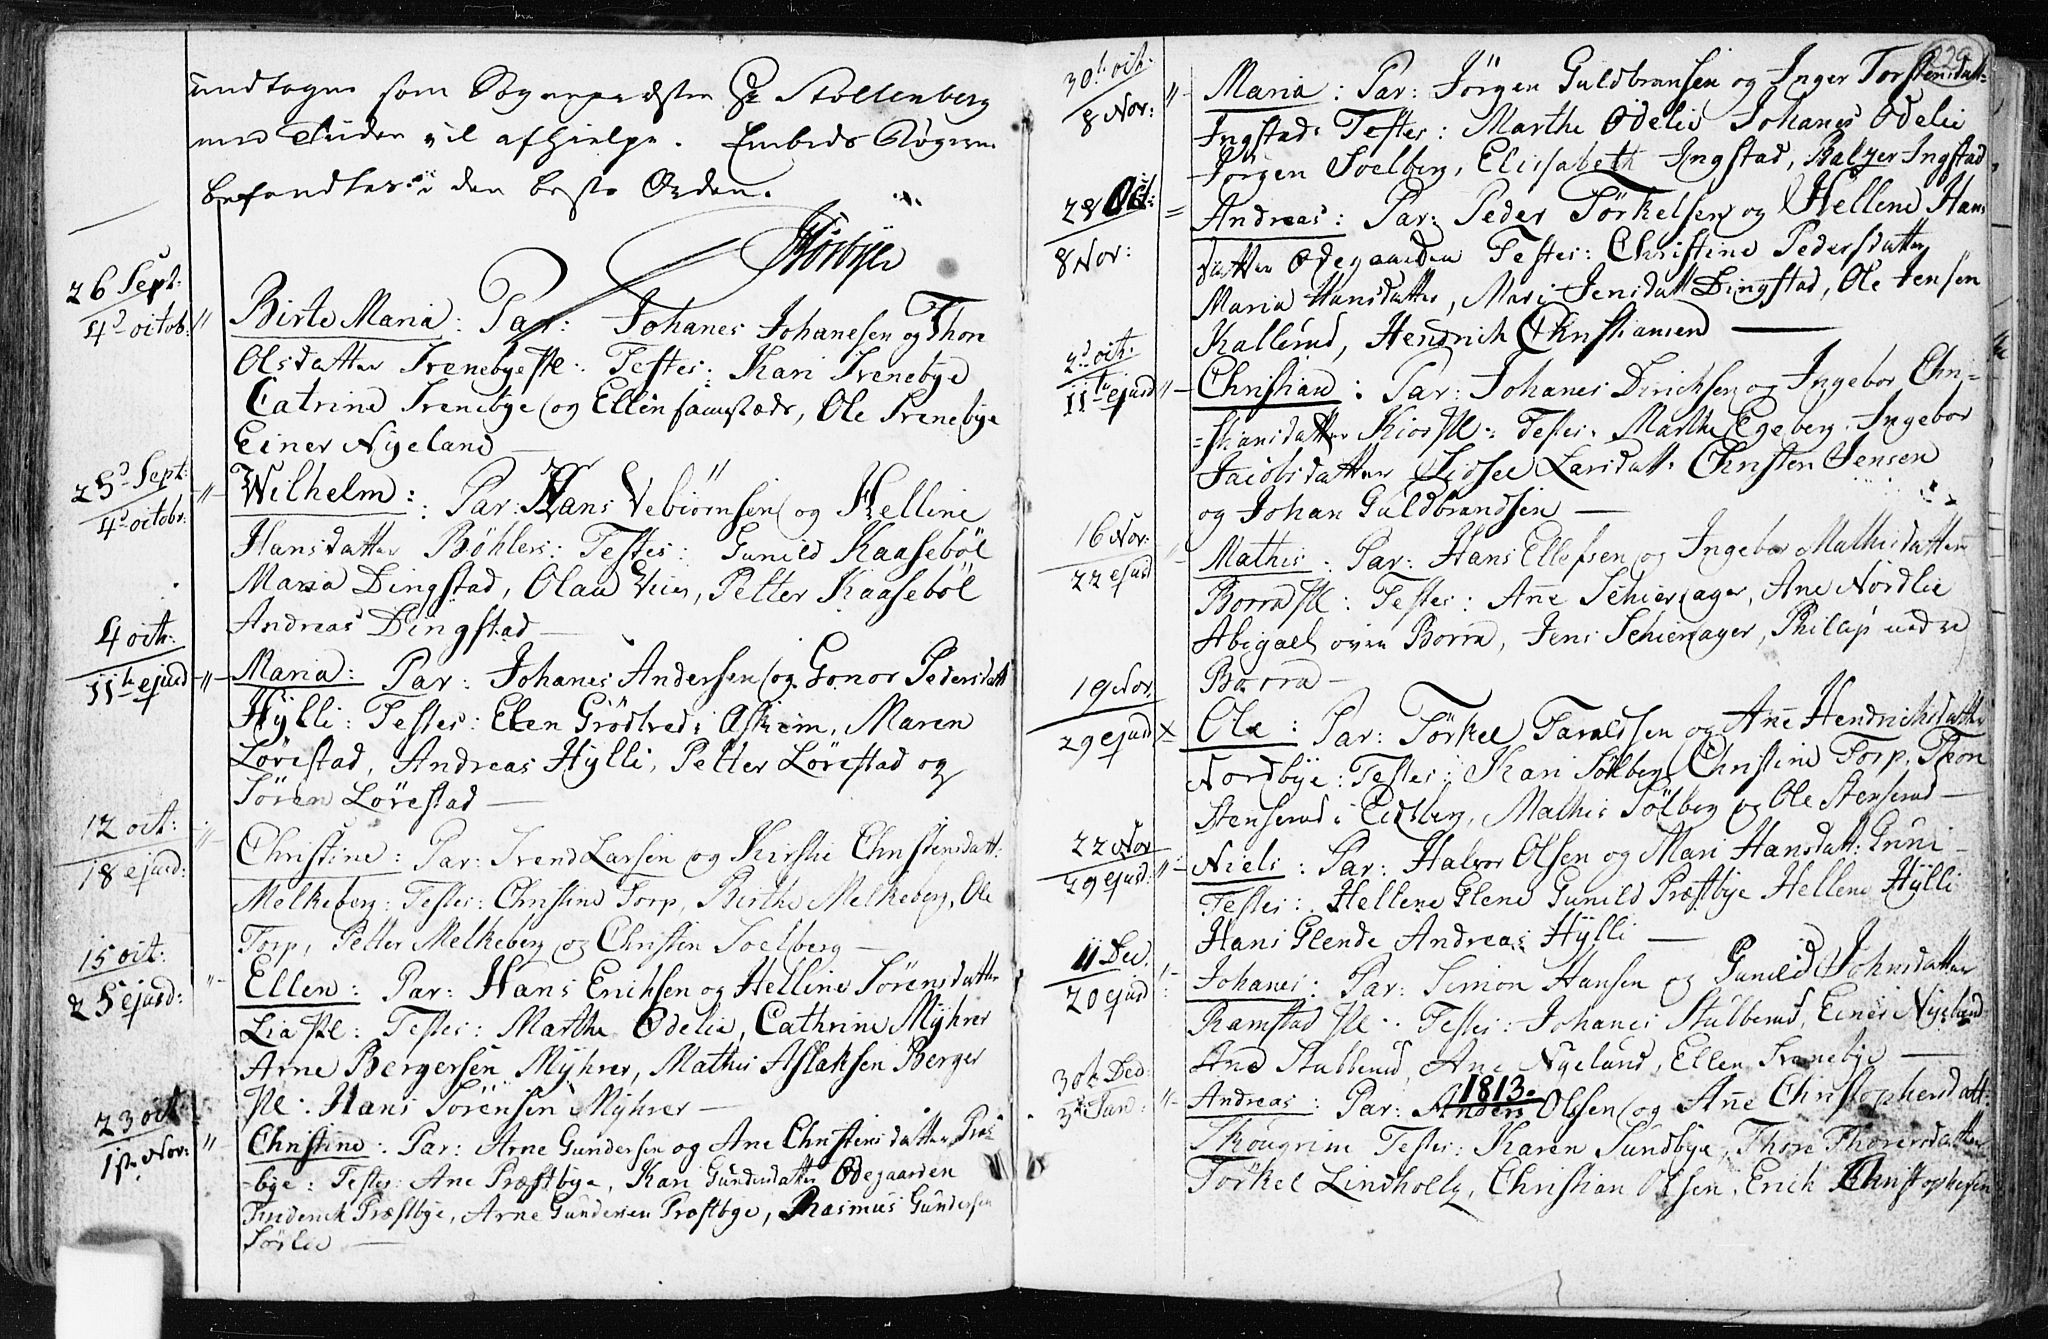 undtagen som Sognepræsten Hr Stoltenberg
med Tiden vil afhjelpe. Embeds Bøgerne
befandtes i den beste Orden.
26 Sept:
4d octob: " Birte Maria: Par: Johanes Johanesen og Thore
Olsdatter Trenebye Pl: Testes: Kari Trenebye
Catrine Trenebye og Ellen samestæds, Ole Trenebye
Einer Nygeland —
25d Sept:
4d octobr: -"- Wilhelm: Par: Hans Vebiørnsen og Helline
Hansdatter Bøhler: Testes: Gunild Kaasebøl
Maria Dingstad, Olau Petter Kaasebøl
Andreas Dingstad —
4 octr:
11te ejusd -"- Maria: Par: Johanes Andersen og Gonor Pedersdatt
Hylli: Testes: Elen Grödtved i Askim, Maren
Lörestad, Andreas Hylli, Petter Lörestad og
Sören Lörestad —
12 oct:
18 ejusd: " Christine: Par: Trend Larsen og Kirstie Christensdatt:
Melkeberg: Testes: Christine Torp, Birthe Melkeberg, Ole
Torp, Petter Melkeberg og Christen Soelberg —
15 oct:
25 ejusd: "- Ellen: Par: Hans Erichsen og Helline Sörensdatter
Lia Pl: Testes: Marthe Ödelie, Cathrine Myhrer
Arne Bergersen Myhrer, Mathis Aslaksen Berger
Pl: Hans Sörensen Myhrer —
23 oct:
1ste Nov: " Christine: Par: Arne Gundersen og Ane Christensdatter Præst
=bye: Testes: Ane Præstbye, Kari Gundersdatter Ödegaarden
Friderich Præstbye, Arne Gundersen Præstbye, Rasmus Gundersen
Sörlie —
30te oct:
8 Nov: "- Maria: Par: Jörgen Guldbransen og Inger Torstensdatt:
Ingstad: Testes: Marthe Ödelie Johanes Ödelie
Jörgen Soelberg, Elisabeth Ingstad, Balzer Ingstad
28 Oct:
8 Nov: = Andreas: Par: Peder Törkelsen og Hellene Hans
datter Ödegaarden Testes: Christine Pedersdatter
Maria Hansdatter, Mari Jensdatt Dingstad, Ole Jensen
Kallerud, Hendrich Christiansen —
2d oct:
11te ejusd "- Christian: Par: Johanes Dirichsen og Ingebor Chri=
=stiansdatter Kios Pl: Testes: Marthe Egeberg, Ingebor
Jacobsdatter Lidsee Larsdatt: Christen Jensen
og Johan Guldbrandsen —
16 Nov:
22 ejusd " Mathis: Par: Hans Ellefsen og Ingebor Mathisdatter
Borra Pl: Testes: Ane Schierager, Ane Nordlie
Abigael ovre Borra, Jens Schierager, Phillip nedre
Borra —
19 Nov.
29 ejusd x Ole: Par: Törkel Taraldsen og Ane Hendrichsdatter
Nordbye: Testes: Kari Sölberg Christine Torp, Thore
Stenserud i Eidsberg, Mathis Sölberg og Ole Stenserud —
22 Nov
29 ejusd: "- Niels: Par: Halvor Olsen og Mari Hansdatt: Gruni
Testes: Hellene Glene Gunild Præstbye Hellene Hylli
Hans Glende Andreas Hylli —
11 Dec.
20 ejusd: Johanes: Par: Simon Hansen og Gunild Johnsdatter
Ramstad Pl: Testes: Johanes Stubberud, Einer Nygeland
Ane Stubberud, Ane Nygeland, Ellen Trenebye —
1813.
30te Dec:
3die Jan: "- Andreas: Par: Anders Olssen og Ane Christophersdatt:
Skougrim Testes: Karen Sundbye, Thore Thorersdatter
Törkel Lindholly, Christian Olssen, Erich Christophersen